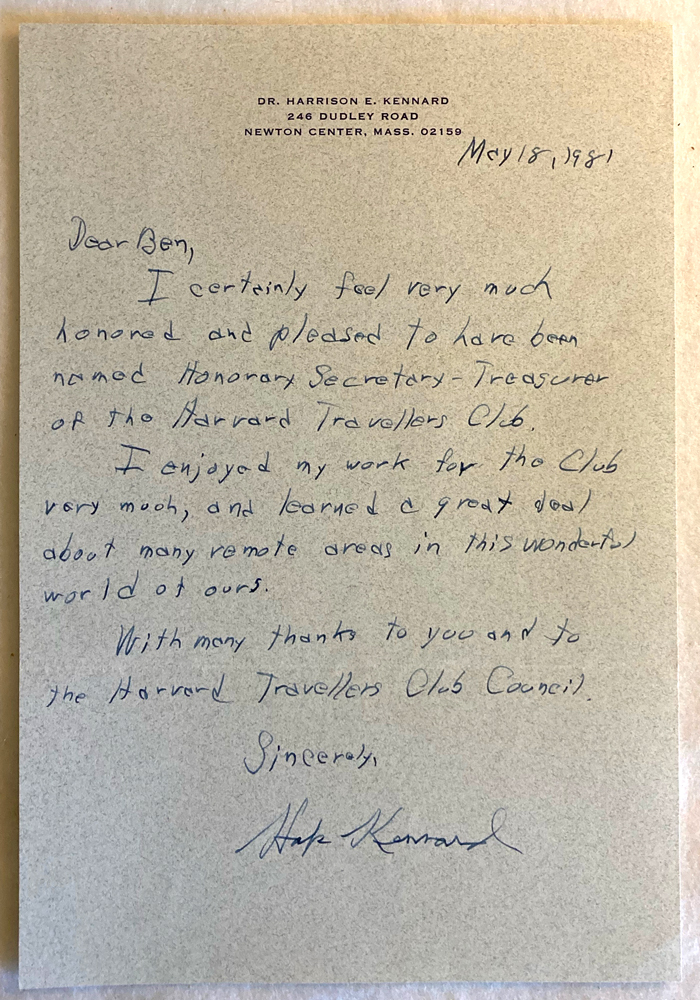 DR. HARRISON E. KENNARD
246 DUDLEY ROAD
NEWTON CENTER, MASS. 02159
May 18, 1981
Dear Ben,
I certainly feel very much
honored and pleased to have been
named Honorary Secretary-Treasurer
of the Harvard Travellers Club.
I enjoyed my work for the Club
very much, and learned a great deal
about many remote areas in this wonderful
world of ours.
With many thanks to you and to
the Harvard Travellers Club Council.
Sincerely,
Hap Kennard